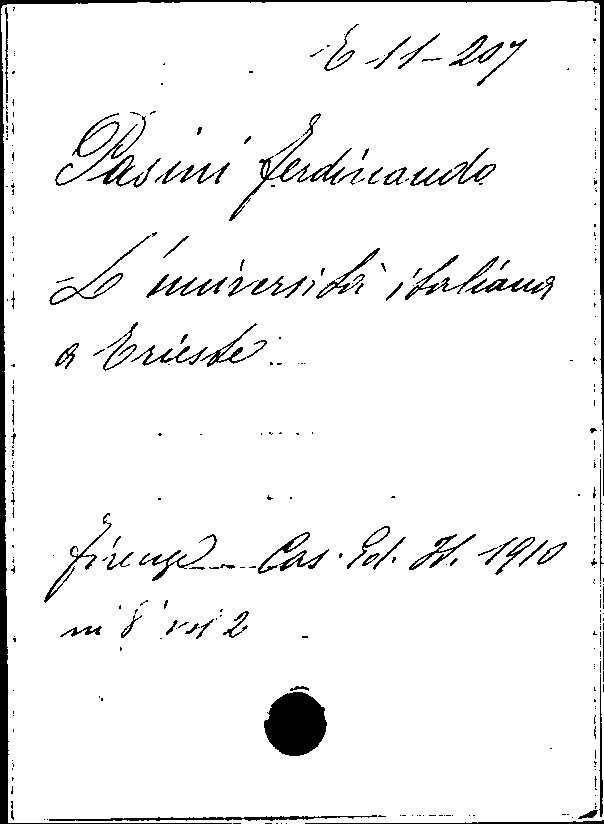 E 11-207
Pasini Ferdinando
L'università italiana
a Trieste
Firenze Cas. Ed. It. 1910
in 8° vol 2